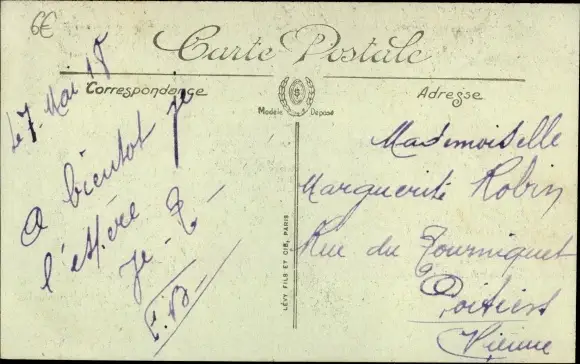 6€
Carte Postale
Correspondance
Adresse
Modèle Déposé
Le 7 Mai 18
A bientot je
l'espère
Je
Mademoiselle
Marguerite Robin
Rue du Tourniquet
à Poitiers
Vienne
LÉVY FILS ET CIE, PARIS